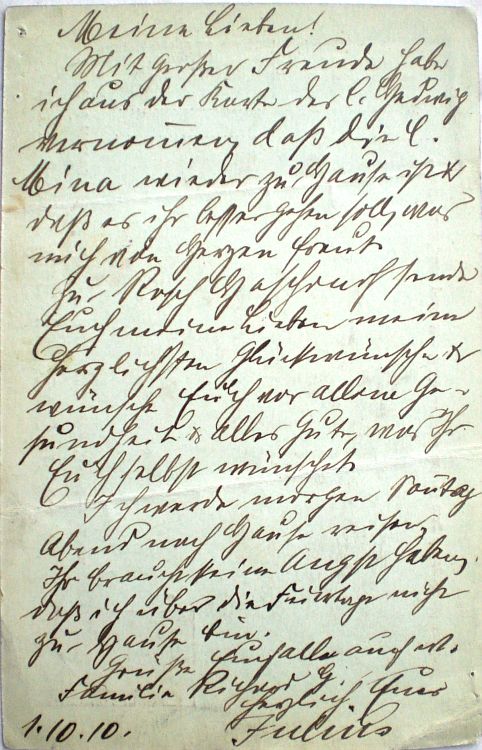 Meine Lieben!
Mit großer Freude habe
ich aus der Karte der l. Hedwig
vernommen, daß die l.
Mina wieder zu Hause ist &
daß es ihr besser gehen soll, was
mich von Herzen freut.
Zu Rosch Haschonoh sende
Euch meine Lieben meine
herzlichsten Glückwünsche &
wünsche Euch vor allem Ge-
sundheit & alles Gute, was Ihr
Euch selbst wünschet.
Ich werde morgen Sontag
Abend nach Hause reisen,
Ihr braucht keine Angst haben,
daß ich über die Feiertage nicht
zu Hause bin.
Grüße Euch alle auch
Familie Richard G.
herzlich Euer
1.10.10. Julius